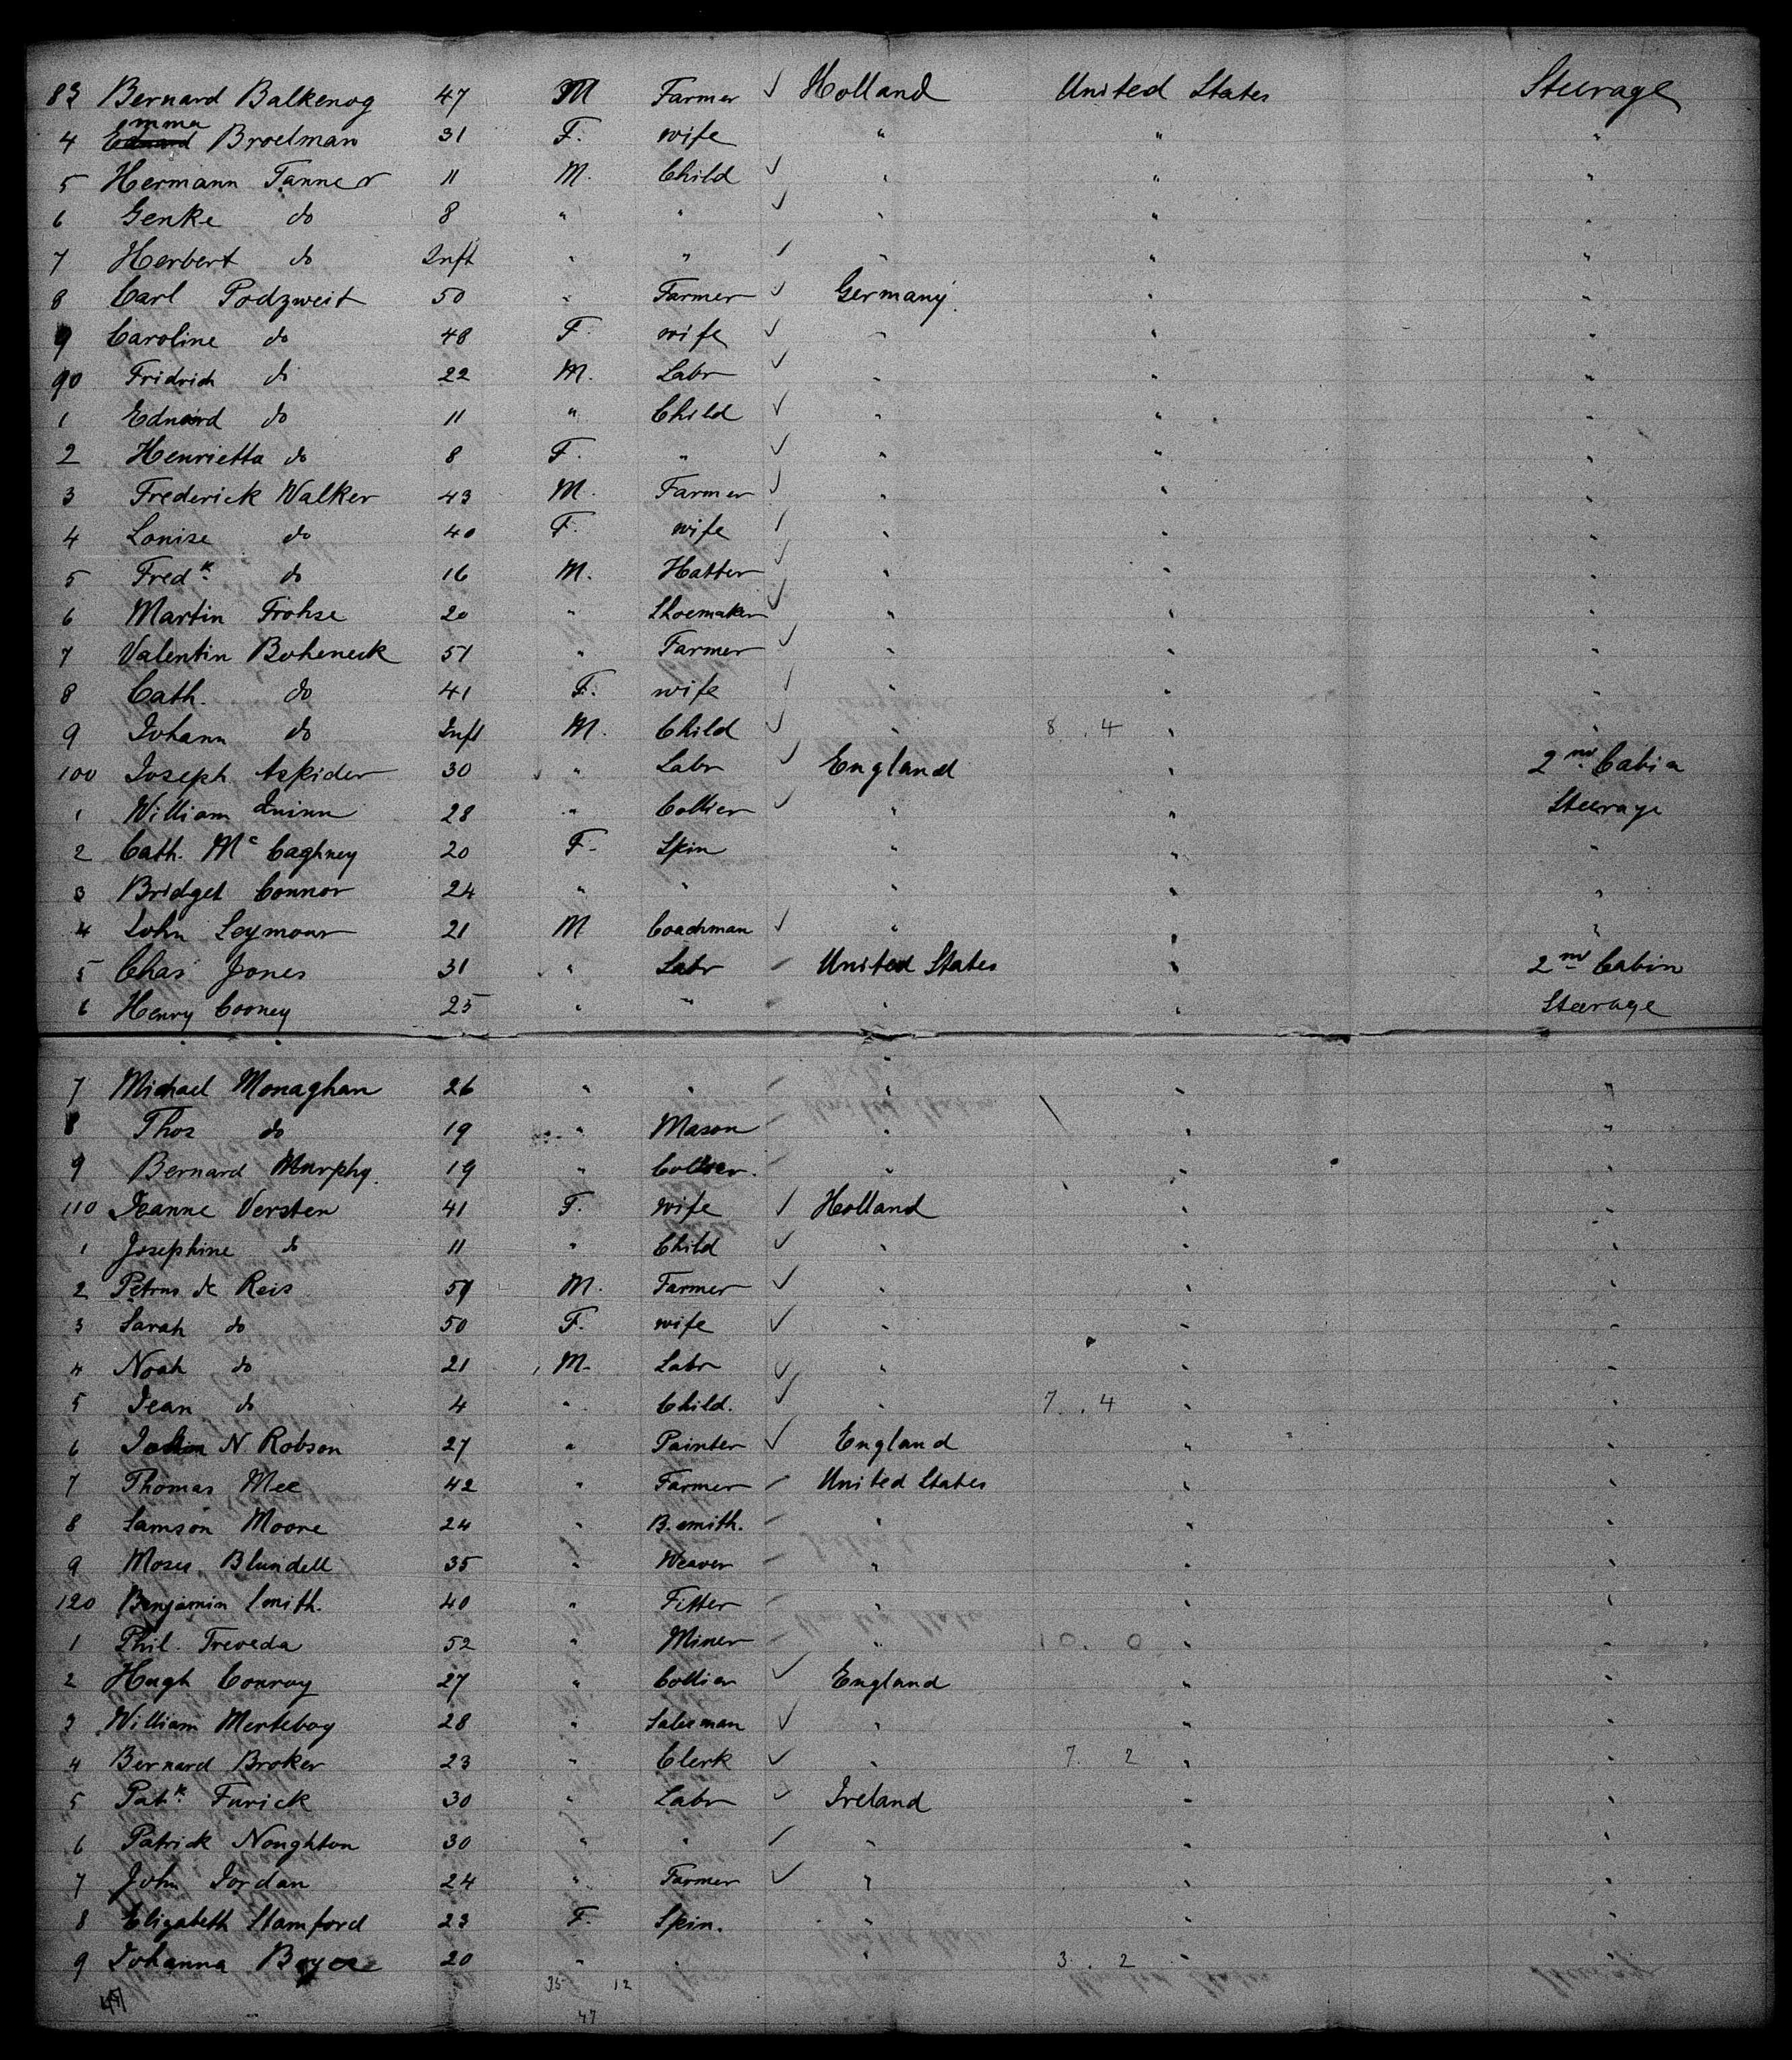 83 Bernard Balkenog 47 M Farmer ✓ Holland United States Steerage
4 Emma Broelman 31 F. wife " " "
5 Hermann Tanner 11 M. Child ✓ " " "
6 Genke do 8 " " ✓ " " "
7 Herbert do Inft " " ✓ " " "
8 Carl Podzweit 50 " Farmer ✓ Germany. " "
9 Caroline do 48 F. wife ✓ " " "
90 Fridrich do 22 M. Labr ✓ " " "
1 Eduard do 11 " Child ✓ " " "
2 Henrietta do 8 F. " ✓ " " "
3 Frederick Walker 43 M. Farmer ✓ " " "
4 Louise do 40 F. wife ✓ " " "
5 Fredk. do 16 M. Hatter ✓ " " "
6 Martin Frohse 20 " Shoemaker ✓ " " "
7 Valentin Boheneck 51 " Farmer ✓ " " "
8 Cath. do 41 F. wife ✓ " " "
9 Johann do Inft M. Child ✓ " 8 . 4 " "
100 Joseph Aspider 30 " Labr ✓ England " 2nd Cabin
1 William Quinn 28 " Collier ✓ " " Steerage
2 Cath. Mc Caghney 20 F. Spin " " "
3 Bridget Connor 24 " " " " "
4 John Seymour 21 M Coachman ✓ " " "
5 Chas Jones 31 " Labr United States " 2nd Cabin
6 Henry Cooney 25 " " " " Steerage
7 Michael Monaghan 26 " " " " "
8 Thos do 19 " Mason " " "
9 Bernard Murphy. 19 " Collier. " " "
110 Jeanne Versten 41 F. wife ✓ Holland " "
1 Josephine do 11 " Child ✓ " " "
2 Petrus de Reis 51 M. Farmer ✓ " " "
3 Sarah do 50 F. wife ✓ " " "
4 Noah do 21 M. Labr ✓ " " "
5 Jean do 4 " Child. ✓ " 7 . 4 " "
6 John N Robson 27 " Painter ✓ England " "
7 Thomas Mee 42 " Farmer United States " "
8 Samson Moore 24 " B.smith. " " "
9 Moses Blundell 35 " Weaver " " "
120 Benjamin Smith. 40 " Fitter " " "
1 Phil. Treveda 52 " Miner " 10 . 0 " "
2 Hugh Conroy 27 " Collier ✓ England " "
3 William Mertebog 28 " Salesman ✓ " " "
4 Bernard Broker 23 " Clerk ✓ " 7. 2 " "
5 Patk. Furick 30 " Labr ✓ Ireland " "
6 Patrick Noughton 30 " " ✓ " " "
7 John Jordan 24 " Farmer ✓ " " "
8 Elizabeth Stamford 23 F. Spin. " " "
9 Johanna Boyce 20 " " " 3 . 2 " "
35 12
47 47